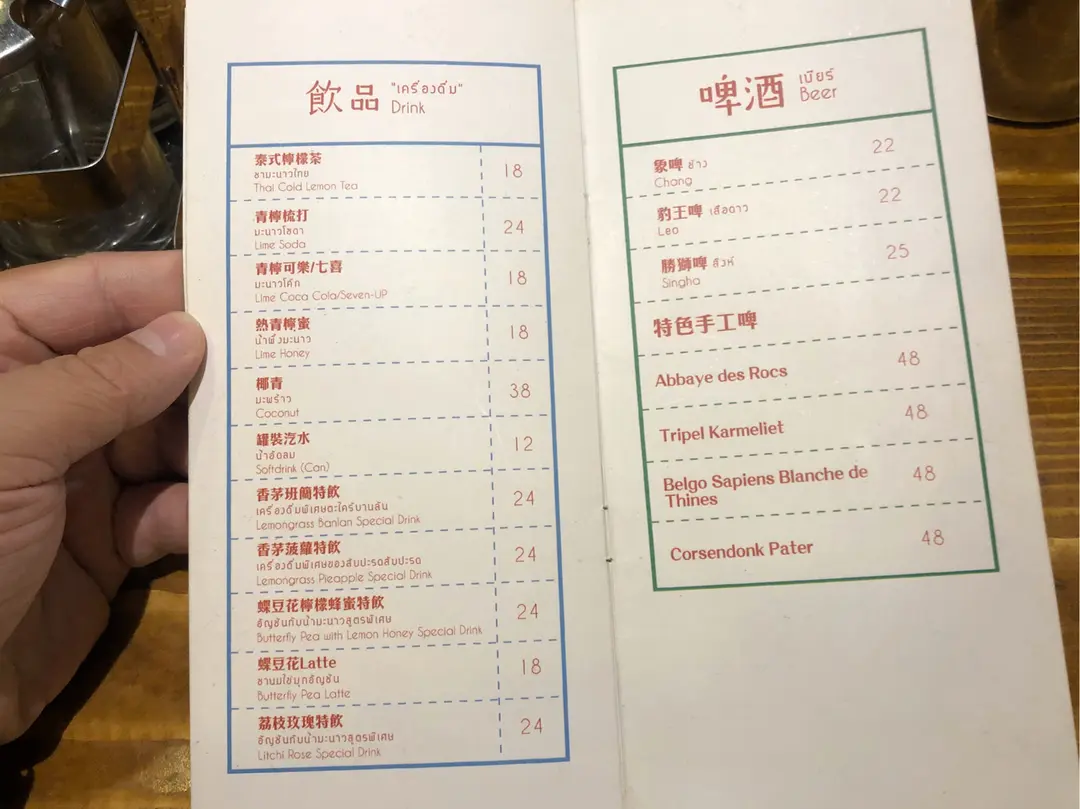 飲品 "เครื่องดื่ม"
Drink
泰式檸檬茶
ชามะนาวไทย
Thai Cold Lemon Tea
18
青檸梳打
มะนาวโซดา
Lime Soda
24
青檸可樂/七喜
มะนาวโค้ก
Lime Coca Cola/Seven-UP
18
熱青檸蜜
น้ำผึ้งมะนาว
Lime Honey
18
椰青
มะพร้าว
Coconut
38
罐裝汽水
น้ำอัดลม
Softdrink (Can)
12
香茅班蘭特飲
เครื่องดื่มพิเศษตะไคร้บานลัน
Lemongrass Banlan Special Drink
24
香茅菠蘿特飲
เครื่องดื่มพิเศษของสับปะรดสับปะรด
Lemongrass Pieapple Special Drink
24
蝶豆花檸檬蜂蜜特飲
อัญชันกับน้ำมะนาวสูตรพิเศษ
Butterfly Pea with Lemon Honey Special Drink
24
蝶豆花Latte
ชานมไข่มุกอัญชัน
Butterfly Pea Latte
18
荔枝玫瑰特飲
อัญชันกับน้ำมะนาวสูตรพิเศษ
Litchi Rose Special Drink
24
啤酒 เบียร์
Beer
象啤 ช้าง
Chang
22
豹王啤 เสือดาว
Leo
22
勝獅啤 สิงห์
Singha
25
特色手工啤
Abbaye des Rocs
48
Tripel Karmeliet
48
Belgo Sapiens Blanche de
Thines
48
Corsendonk Pater
48